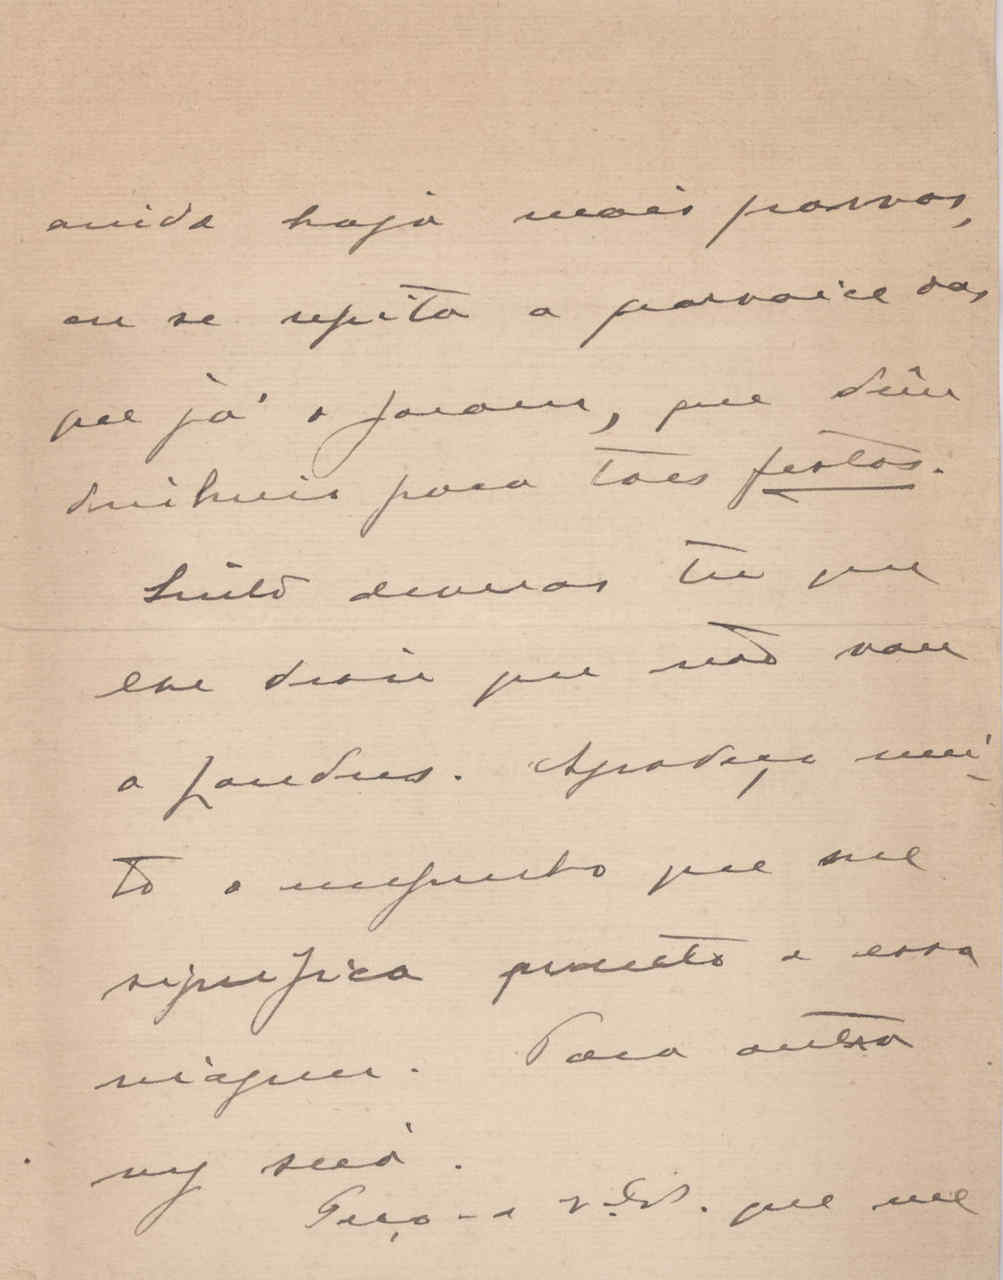 ainda haja mais parvos,
ou se repita a parvoice dos
que já o foram, que dêm
dinheiro para taes festas.
Sinto deveras ter que
lhe dizer que não vou
a Londres. Agradeço mui-
to o interesse que me
significa quanto a essa
viagem. Para outra
vez será.
Peço-a V. Ex. que me